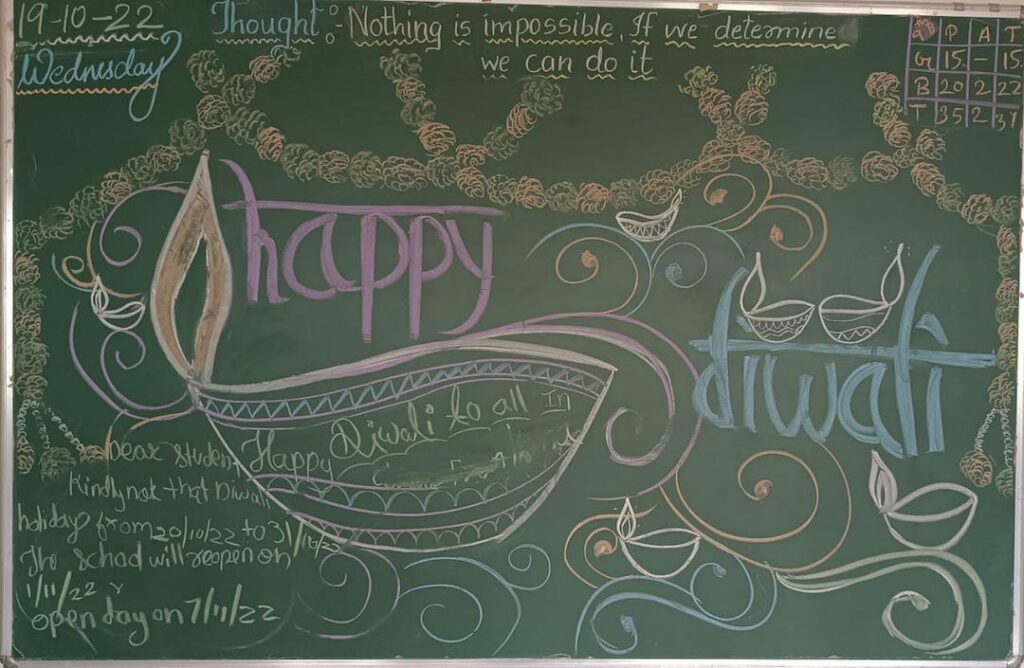 19-10-22
Wednesday
Thought:- Nothing is impossible. If we determine
we can do it
P A T
G 15 - 15
B 20 2 22
T 35 2 37
happy
diwali
Happy Diwali to all In
Dear student
Kindly not that Diwali
holiday from 20/10/22 to 31/10/22
The School will reopen on
1/11/22 &
open day on 7/11/22